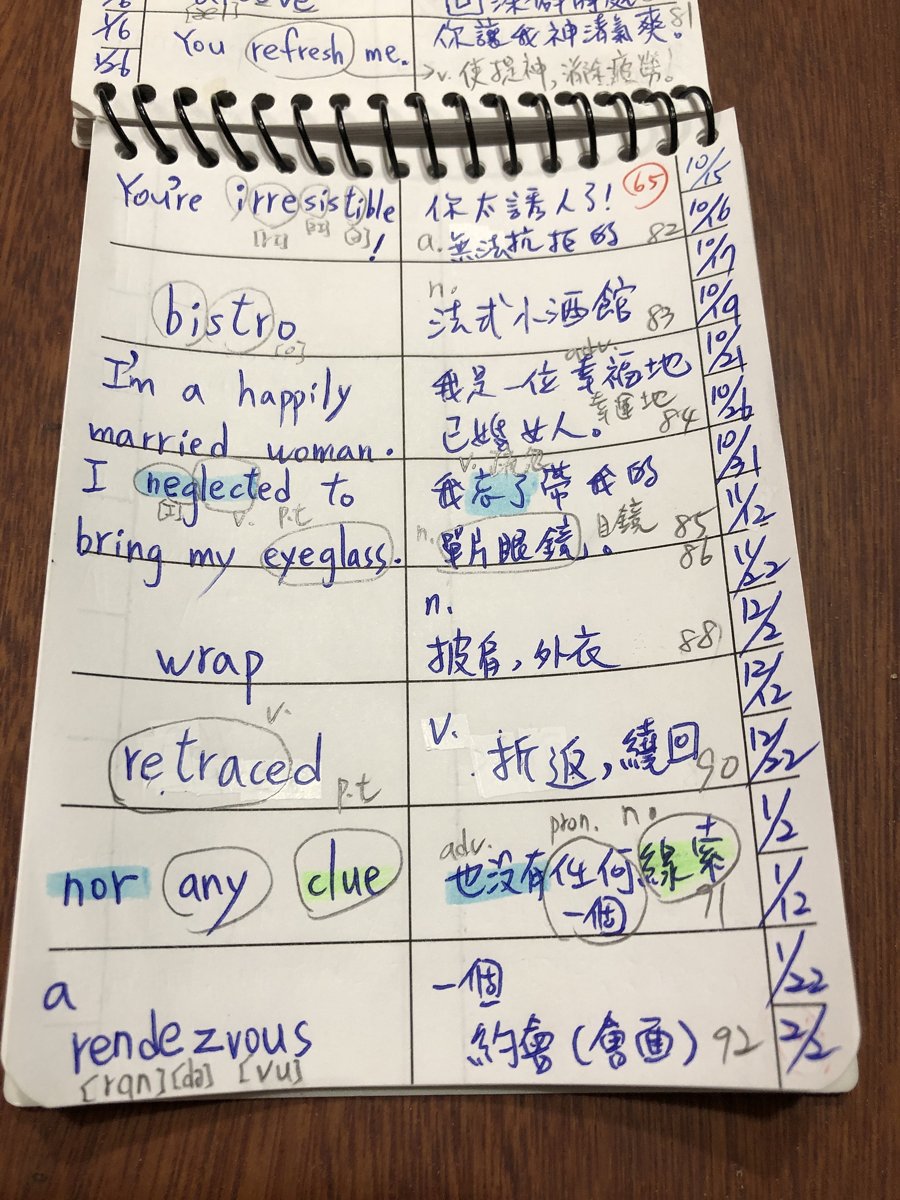 1/6
1/26
You refresh me.
你讓我神清氣爽! 81
→v. 使提神,消除疲勞!
You're irresistible!
[rɪ] [zɪ] [ə]
你太誘人了! 65
a. 無法抗拒的 82
bistro
[o]
n.
法式小酒館 83
I'm a happily
married woman.
adv.
我是一位幸福地
幸運地
已婚女人。 84
I neglected to
[ɪ] v. p.t
bring my eyeglass.
v. 疏忽
我忘了帶我的
n. 單片眼鏡。 目鏡 85
86
wrap
n.
披肩,外衣 88
retraced
v.
p.t
v.
折返,繞回 90
nor any clue
adv. pron. n.
也沒有任何線索
一個 91
a
rendezvous
[rɑn][də] [vu]
一個
約會(會面) 92
10/15
10/16
10/17
10/19
10/21
10/26
10/31
11/12
11/22
12/2
12/12
12/22
1/2
1/12
1/22
2/2